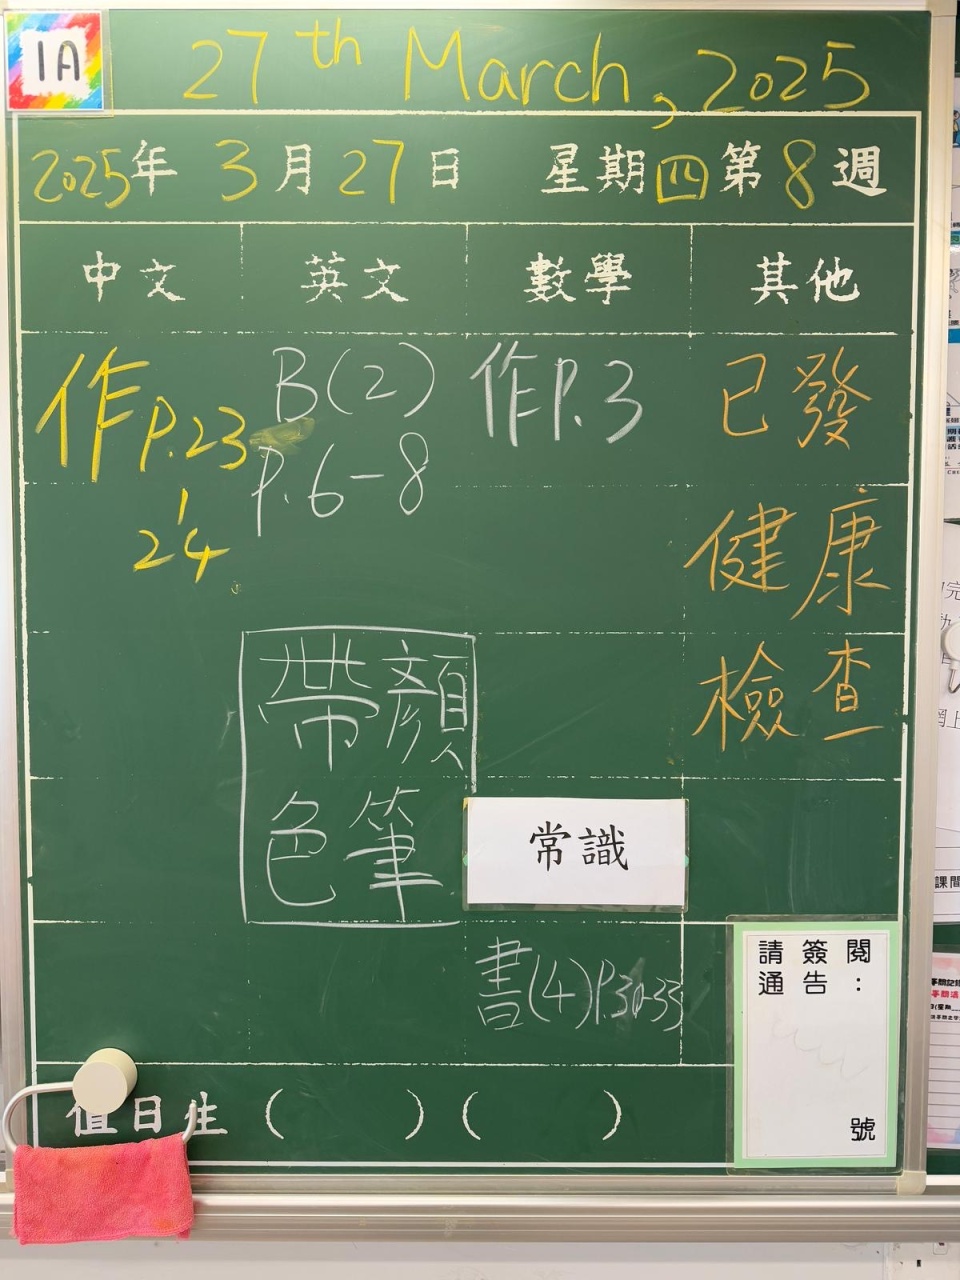 1A
27th March, 2025
2025年 3月 27日 星期四 第8週
中文 英文 數學 其他
作P.23
24
B(2)
P.6-8
作P.3
已發
健康
檢查
帶顏
色筆
常識
書(4)P.30-33
請簽閱
通告：
號
值日生 ( ) ( )